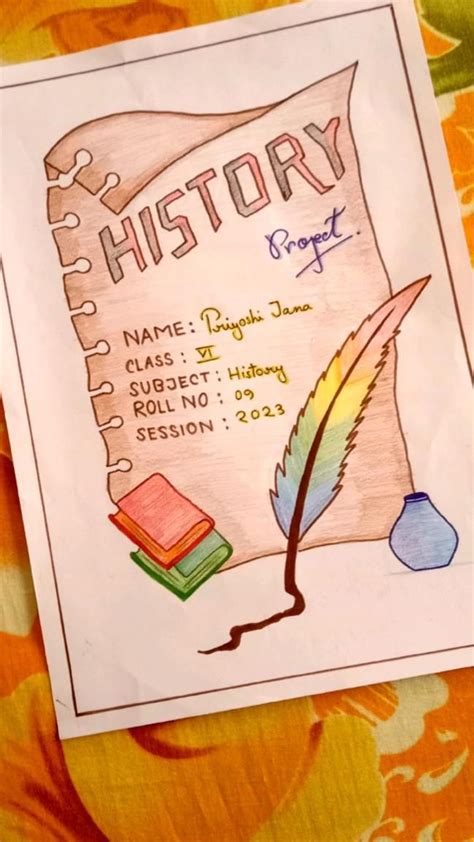 HISTORY
Project.
NAME: Priyoshi Jana
CLASS : VI
SUBJECT : History
ROLL NO : 09
SESSION : 2023